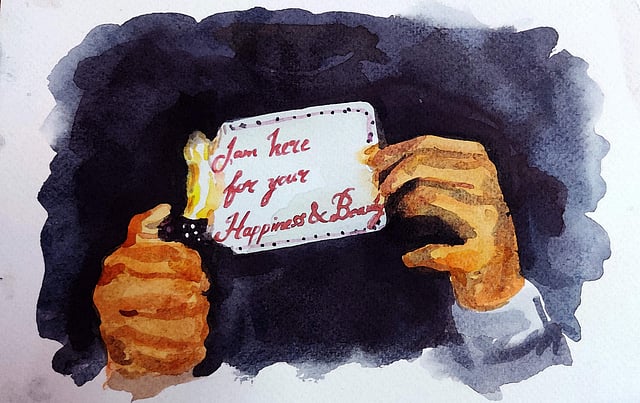 I am here
for your
Happiness & Beauty